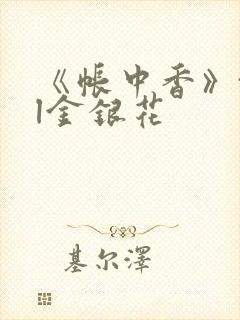 《帐中香》
|金银花
基尔泽